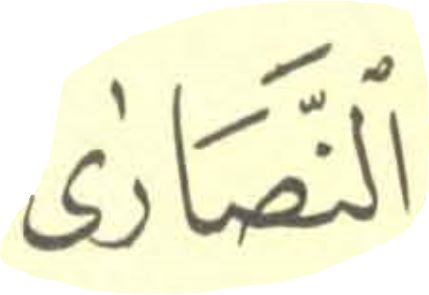 ٱلنَّصَارَىٰ